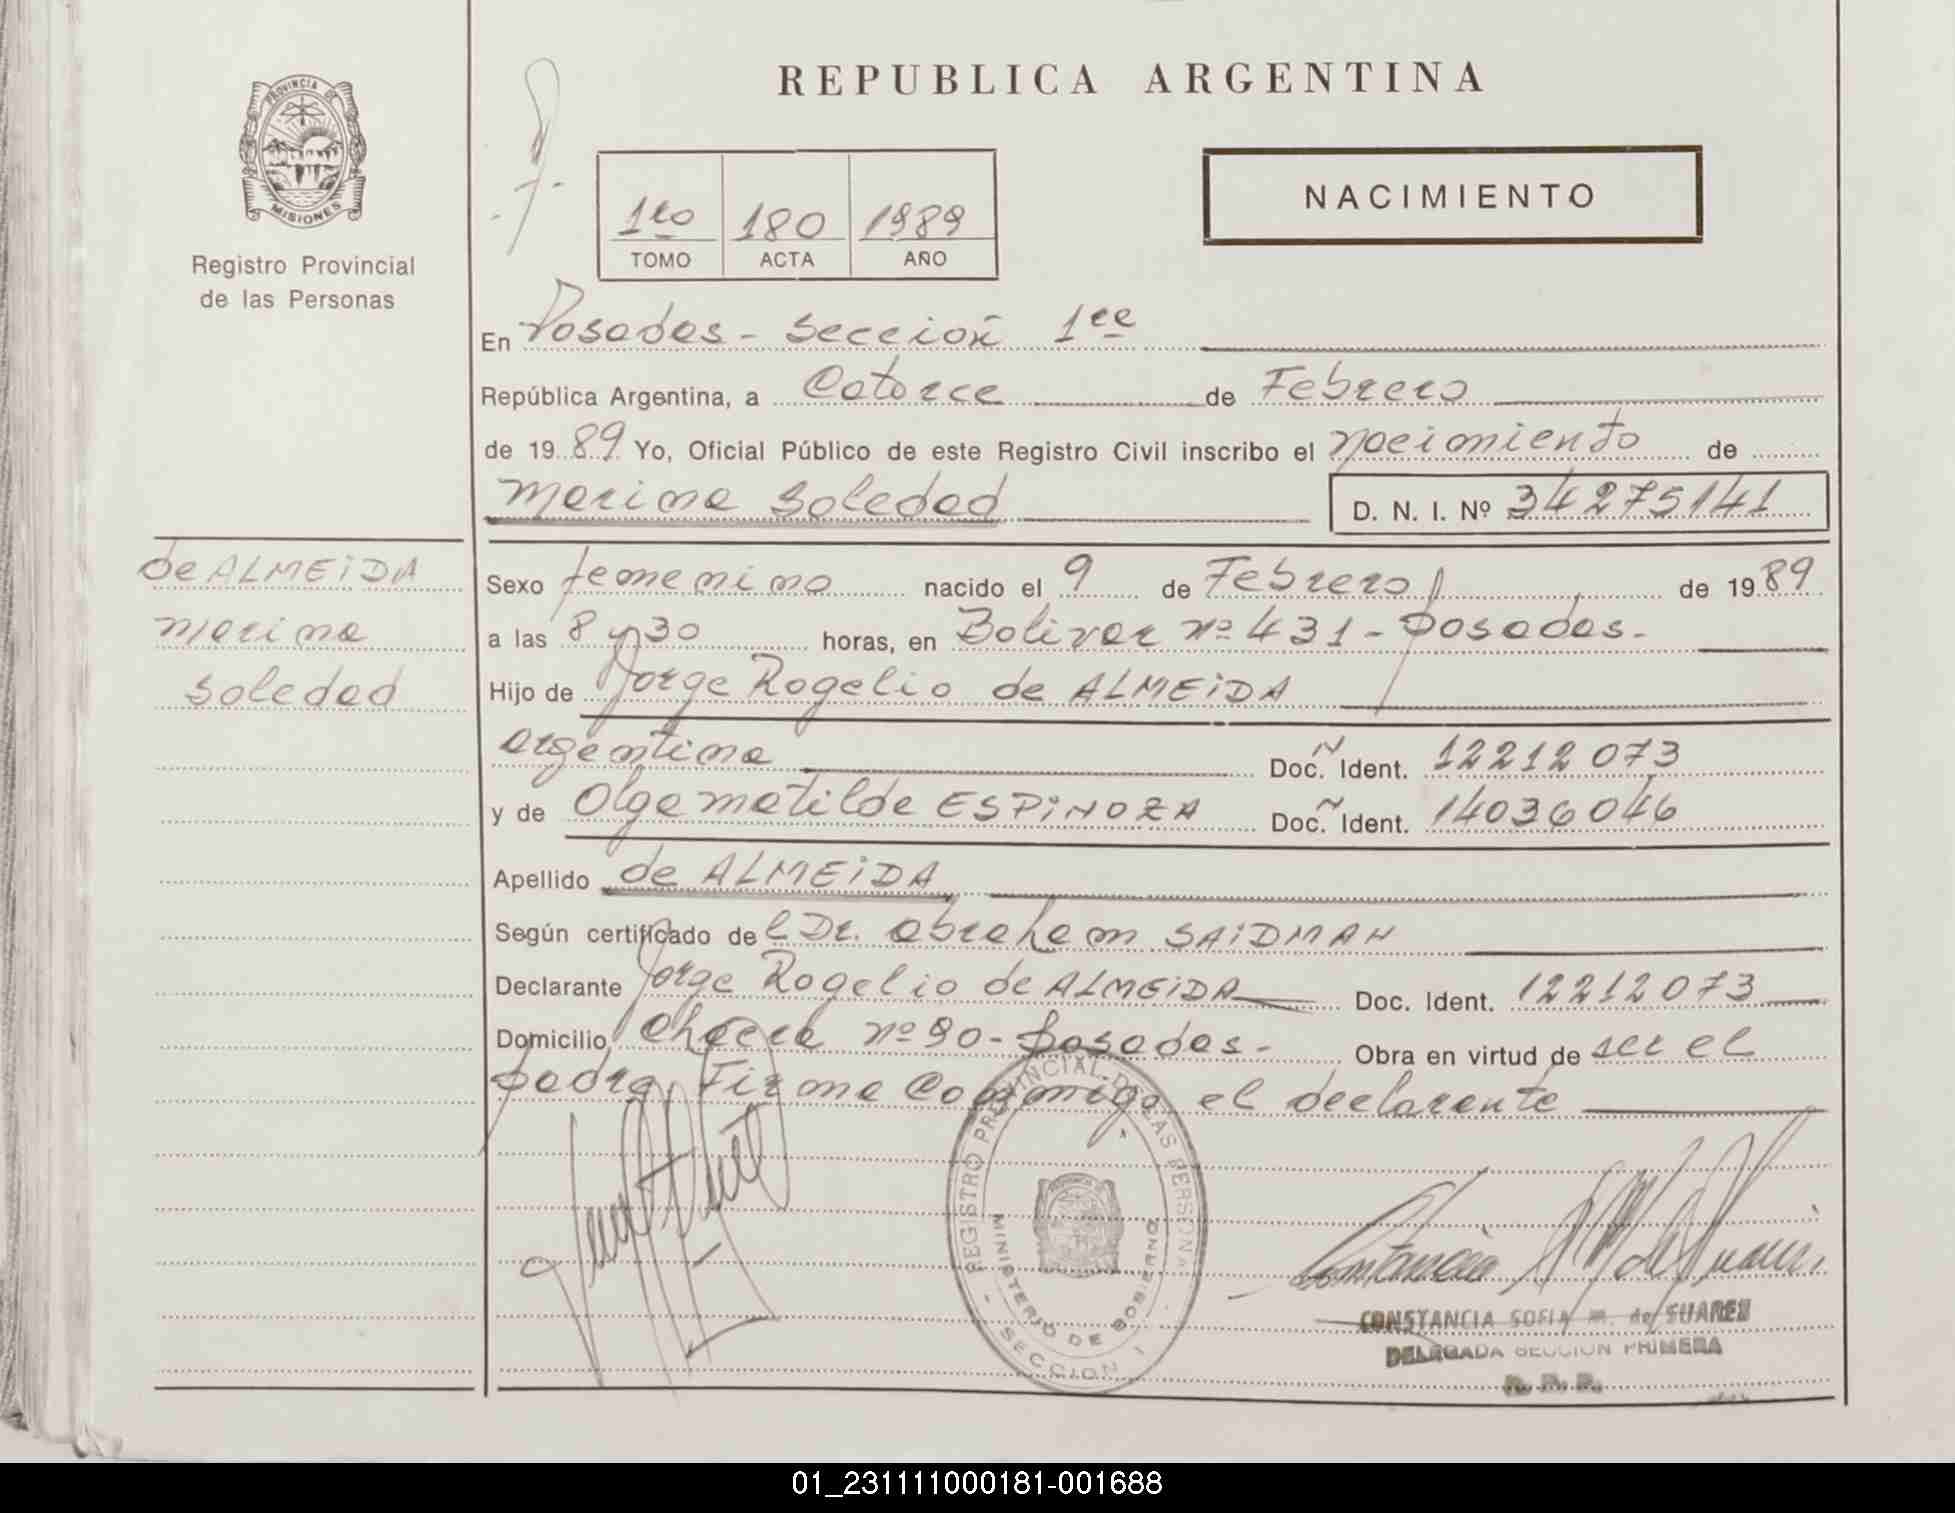 PROVINCIA DE
MISIONES
Registro Provincial
de las Personas
REPUBLICA ARGENTINA
NACIMIENTO
1ro 180 1989
TOMO ACTA AÑO
En Posadas - Sección 1ra
República Argentina, a Catorce de Febrero
de 1989 Yo, Oficial Público de este Registro Civil inscribo el nacimiento de
Marina Soledad D. N. I. Nº 34275141
de ALMEiDA
Marina
Soledad
Sexo femenino nacido el 9 de Febrero de 1989
a las 8 y 30 horas, en Bolivar nº 431 - Posadas -
Hijo de Jorge Rogelio de ALMEiDA
argentina Doc. Ident. 12212073
y de Olga Matilde ESPiNOZA Doc. Ident. 14036046
Apellido de ALMEiDA
Según certificado del Dr. Abraham SAiDMAN
Declarante Jorge Rogelio de ALMEiDA Doc. Ident. 12212073
Domicilio Chacra nº 90 - Posadas - Obra en virtud de ser el
padre. Firma Conmigo el declarante
REGISTRO PROVINCIAL DE LAS PERSONAS
MINISTERIO DE GOBIERNO
- SECCION I -
CONSTANCIA SOFIA M. de SUAREZ
DELEGADA SECCION PRIMERA
R. P. P.
01_231111000181-001688